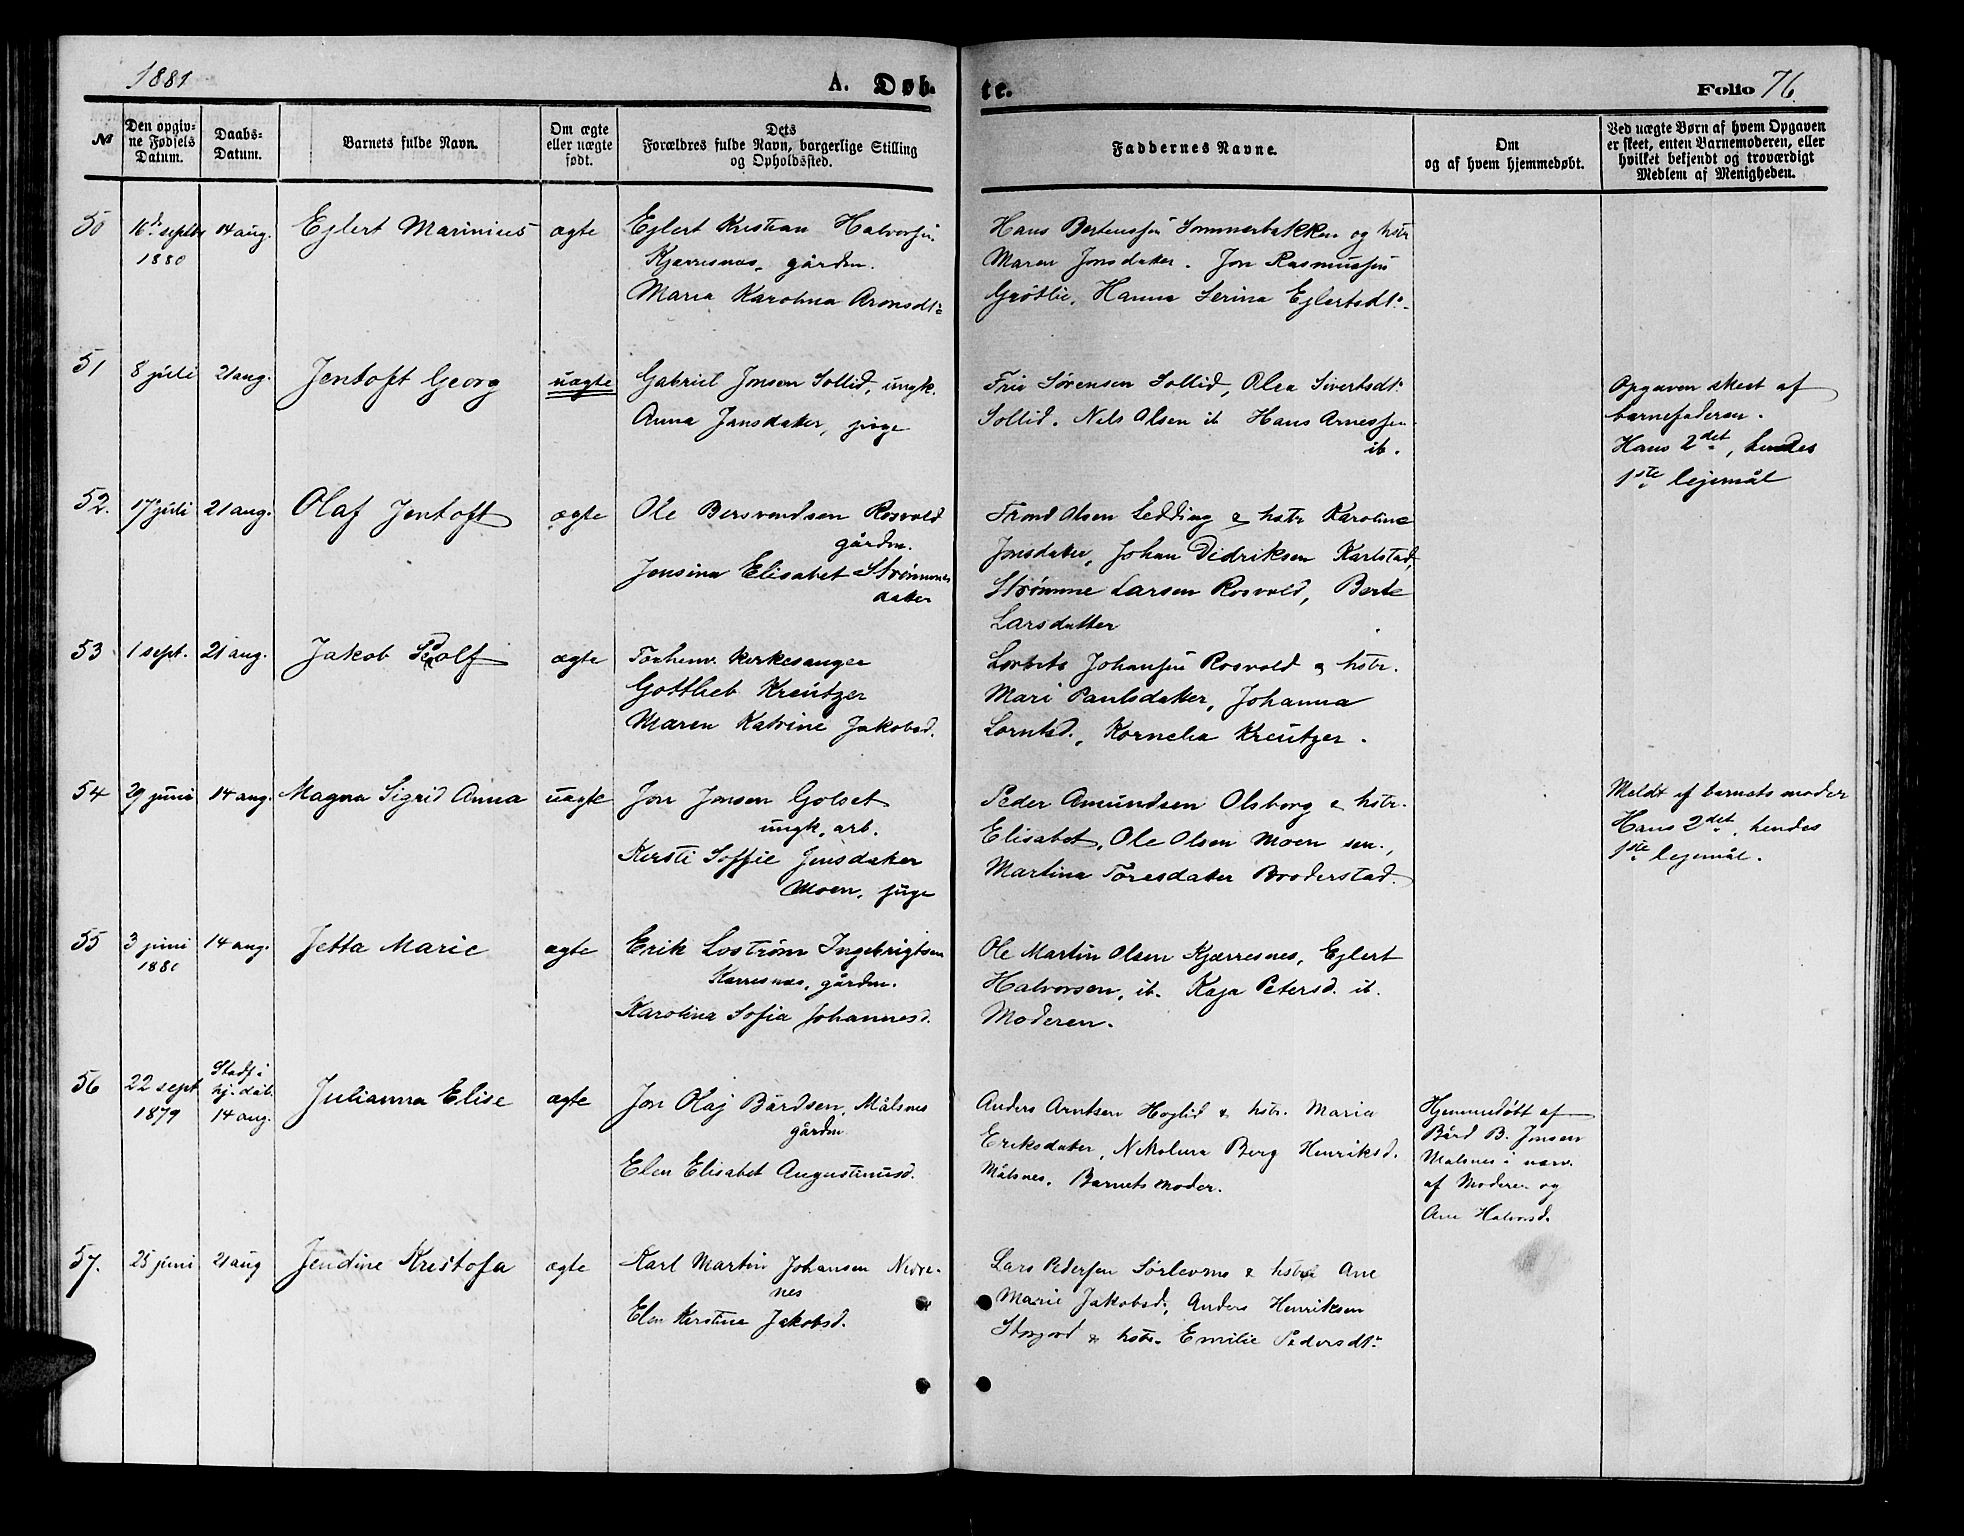 1881
A. Døbte.
Folio 76.
№
Den opgivne Fødsels Datum.
Daabs-Datum.
Barnets fulde Navn.
Om ægte eller uægte født.
Dets Forældres fulde Navn, borgerlige Stilling og Opholdssted.
Faddernes Navne.
Om og af hvem hjemmedøbt.
Ved uægte Børn af hvem Opgaven er skeet, enten Barnemoderen, eller hvilket bekjendt og troværdigt Medlem af Menigheden.
50
16d septbr
1880
14 aug.
Ejlert Marinius
ægte
Ejlert Kristian Halvorsen
Kjærresnæs, gårdm.
Maria Karolina Aronsdtr
Hans Berteussen Sommerbakken og hstr
Maren Jonsdatter. Jon Rasmussen
Grötlie, Hanna Serina Ejlertsdtr.
51
8 juli
21 aug.
Jentoft Georg
uægte
Gabriel Jonsen Sollid, ungk.
Anna Jansdatter, pige
Sørensen Sollid, Olea Sivertsdtr
Sollid. Nels Olsen ib Hans Arnessen
ib.
Opgaven skeet af
barnefaderen.
Hans 2det, hendes
1ste lejemål
52.
17 juli
21 aug.
Olaf Jentoft
ægte
Ole Bersvendsen Rosvold
gårdm.
Jensina Elisabet Strømmes
datter
Trond Olsen Ledding & hstr Karoline
Jonsdatter, Johan Didriksen Karlstad,
Strømme Larsen Rosvold, Berte
Larsdatter
53
1 sept.
21 aug.
Jakob Rolf
ægte
Forhenv. kirkesanger
Gottlieb Kreutzer
Maren Katrine Jakobsd.
Lornts Johansen Rosvold & hstr.
Mari Paulsdatter, Johanna
Lorntsd., Kornelia Kreutzer.
54
29 juni
14 aug.
Magna Sigrid Anna
uægte
Jon Jonsen Golset
ungk, arb.
Kirsti Soffie Jensdatter
Moen, pige
Peder Amundsen Olsborg & hstr.
Elisabet, Ole Olsen Moen sen.,
Martina Toresdatter Broderstad.
Meldt af barnets moder
Hans 2det, hendes
1ste lejemål.
55
3 juni
1880
14 aug.
Jetta Marie
ægte
Erik Lostrøm Ingebrigtsen
Kærresnæs, gårdm.
Karolina Sofia Johannesd.
Ole Martin Olsen Kjærresnes, Ejlert
Halvorsen, ib. Kaja Petersd. ib.
Moderen.
56
22 sept
1879
Stadf. i
hj. dåb.
14 aug.
Julianna Elise
ægte
Jon Olaj Bårdsen, Målsnes
gårdm
Elen Elisabet Augustinusd.
Anders Arntsen Hoglid & hstr. Maria
Eriksdatter, Nikolina Berg Henriksd.
Målsnes. Barnets moder.
Hjemmedøbt af
Bård B. Jonsen
Målsnes i nærv.
af Moderen og
Ane Halvorsd.
57.
25 juni
21 aug
Jendine Kristofa
ægte
Karl Martin Johansen Nevre-
nes
Elen Kirstina Jakobsd.
Lars Pedersen Sørlevmo & hstru Ane
Marie Jakobsd, Anders Henriksen
Storjord & hstr. Emilie Pedersdtr